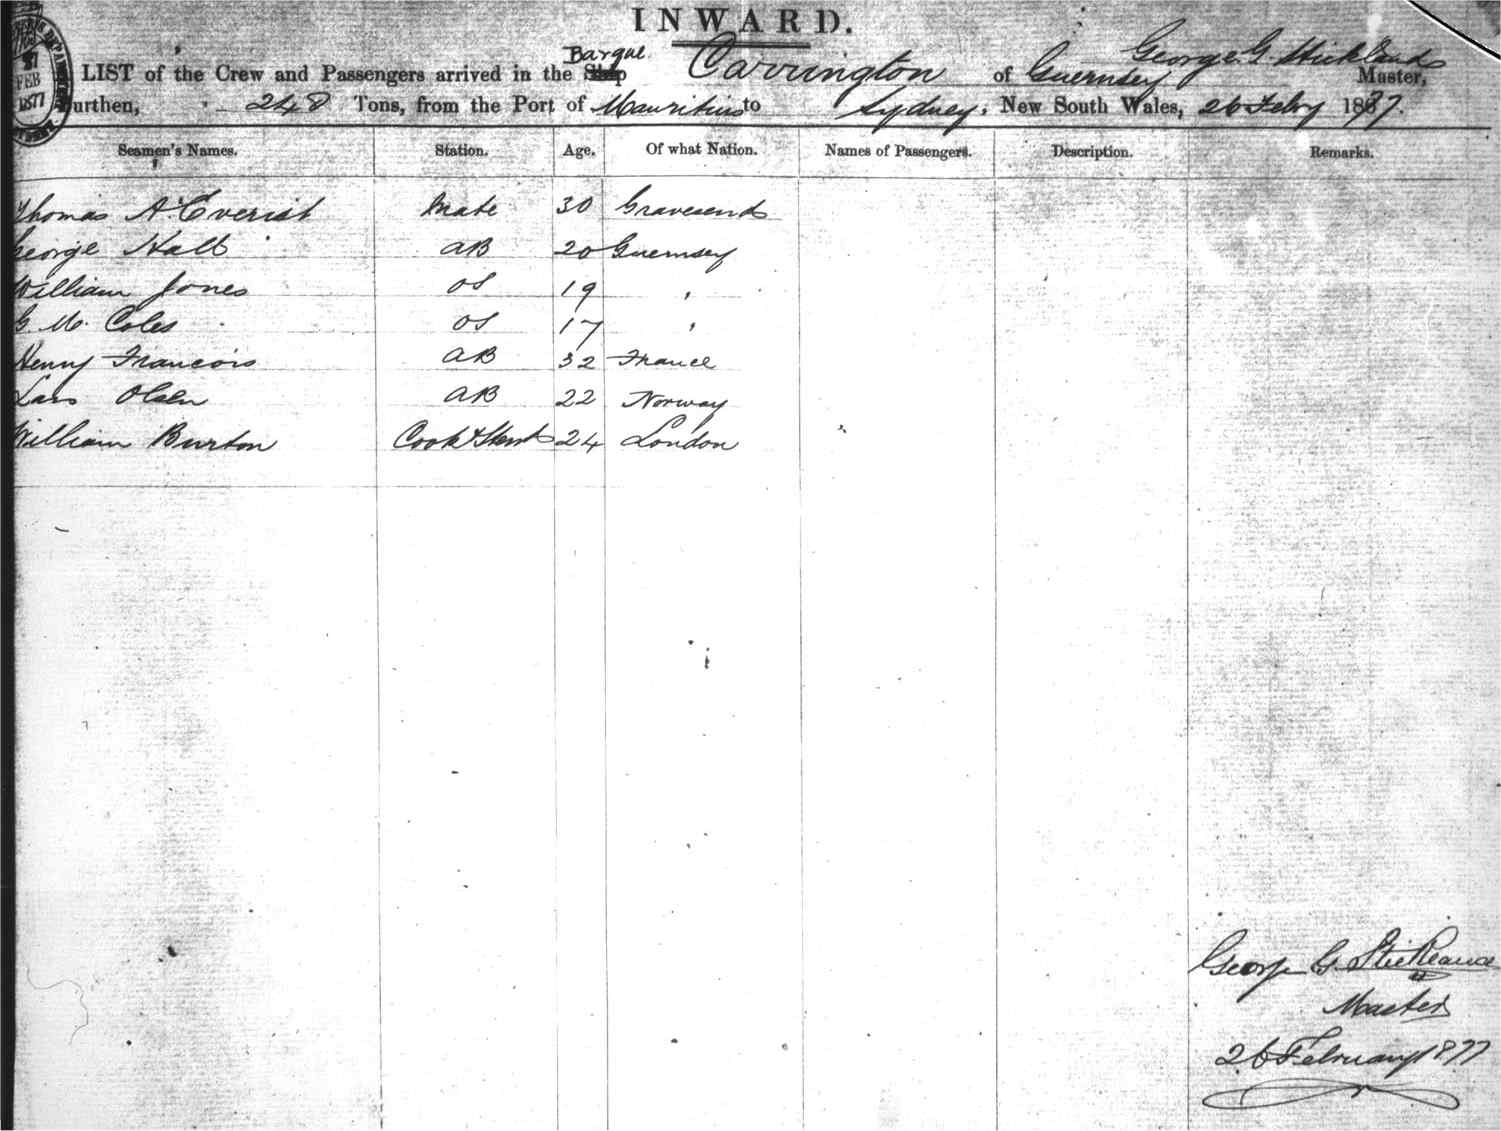 INWARD.
Barque George G. Stickland
LIST of the Crew and Passengers arrived in the Ship Carrington of Guernsey Master,
Burthen, 248 Tons, from the Port of Mauritius to Sydney, New South Wales, 26 Febry 1877.
FEB
1877
Seamen's Names. Station. Age. Of what Nation. Names of Passengers. Description. Remarks.
Thomas A. Everist Mate 30 Gravesend
George Hall AB 20 Guernsey
William Jones OS 19 "
G. M. Coles OS 17 "
Henry Francois AB 32 France
Lars Olsen AB 22 Norway
William Burton Cook & Stewd 24 London
George G. Stickland
Master
26 February 1877